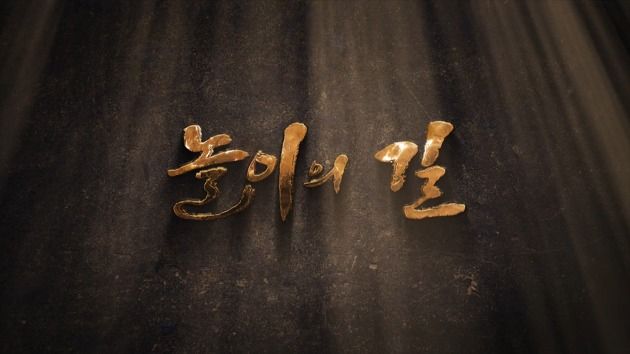 놀이의 길